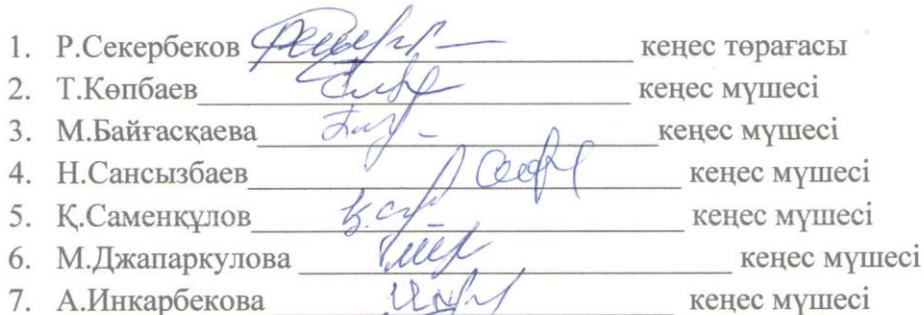 1. Р.Секербеков кеңес төрағасы
2. Т.Көпбаев кеңес мүшесі
3. М.Байғасқаева кеңес мүшесі
4. Н.Сансызбаев кеңес мүшесі
5. Қ.Саменқұлов кеңес мүшесі
6. М.Джапаркулова кеңес мүшесі
7. А.Инкарбекова кеңес мүшесі